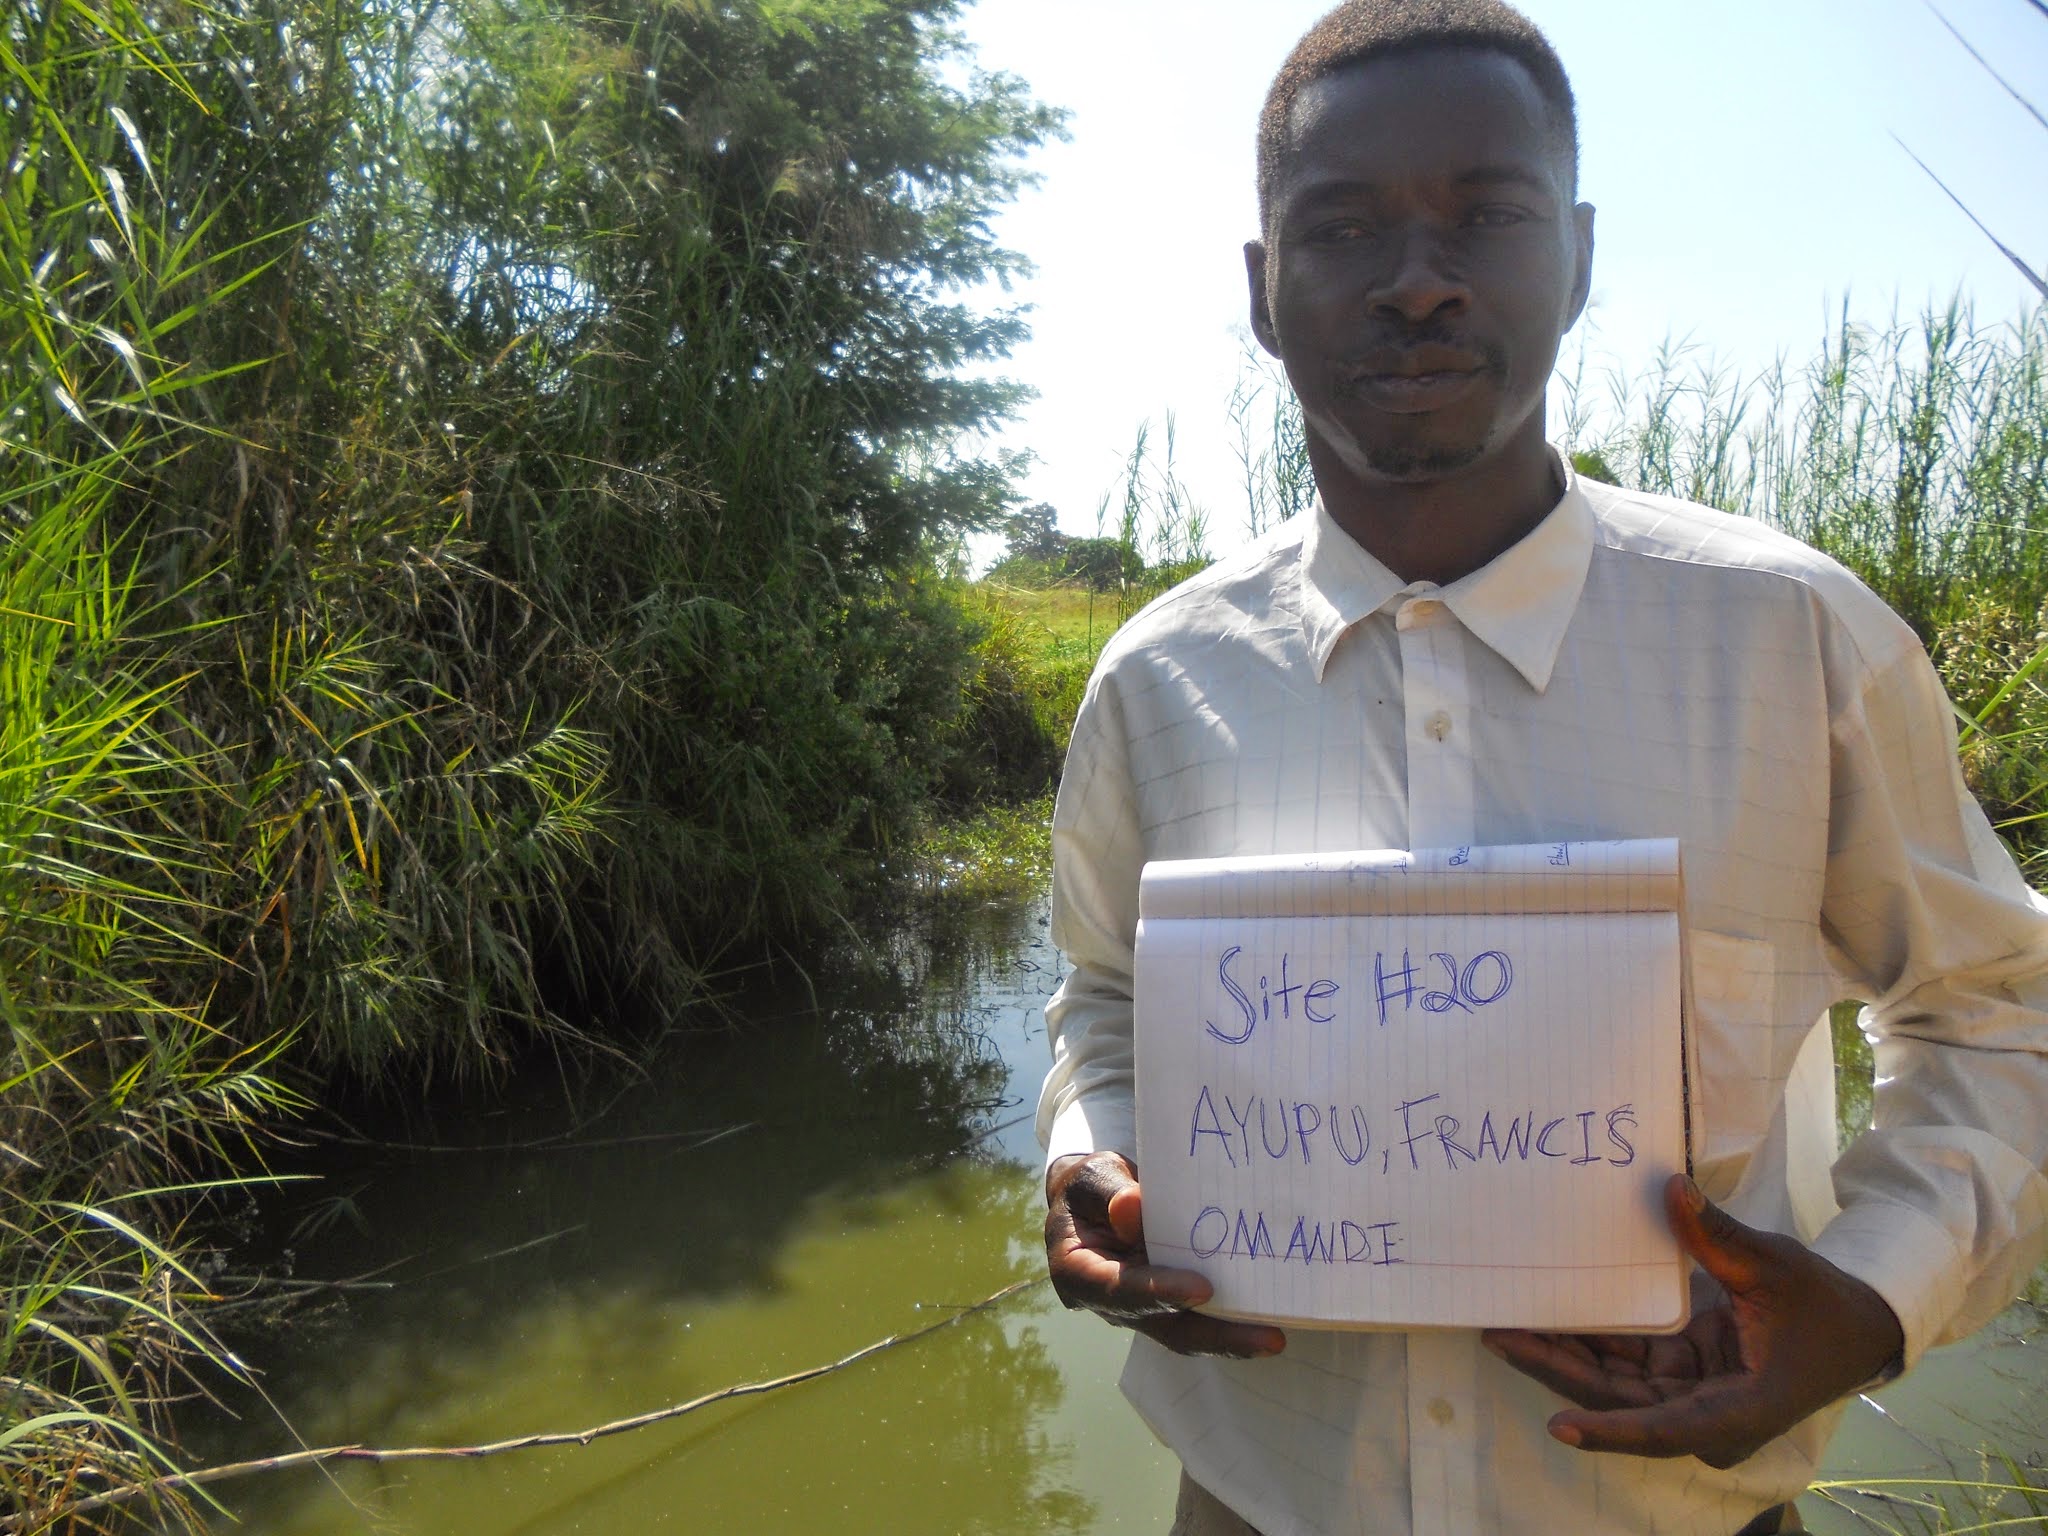 Site #20
AYUPU, FRANCIS
OMANDE